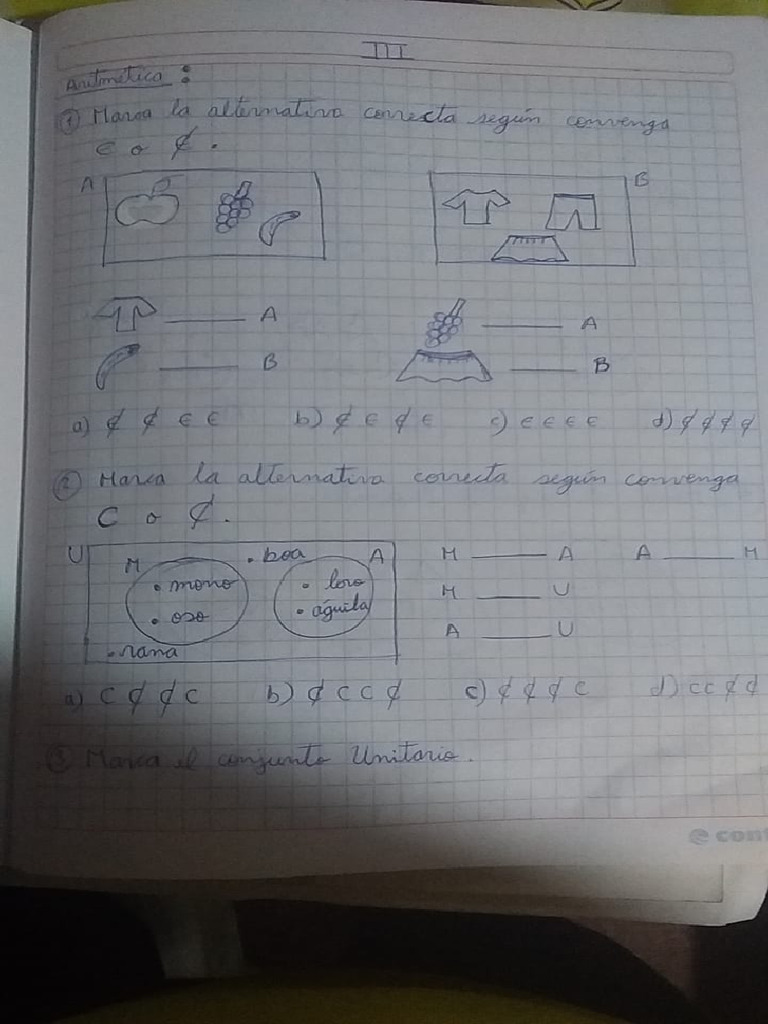 III
Aritmética :
① Marca la alternativa correcta según convenga
∈ o ∉.
A B
____ A ____ A
____ B ____ B
a) ∉ ∉ ∈ ∈ b) ∉ ∈ ∉ ∈ c) ∈ ∈ ∈ ∈ d) ∉ ∉ ∉ ∉
② Marca la alternativa correcta según convenga
⊂ o ⊄.
U M • boa A M ____ A A ____ M
• mono • loro M ____ U
• oso • águila A ____ U
• rana
a) ⊂ ⊄ ⊄ ⊂ b) ⊄ ⊂ ⊂ ⊄ c) ⊄ ⊄ ⊄ ⊂ d) ⊂ ⊂ ⊄ ⊄
③ Marca el conjunto Unitario.